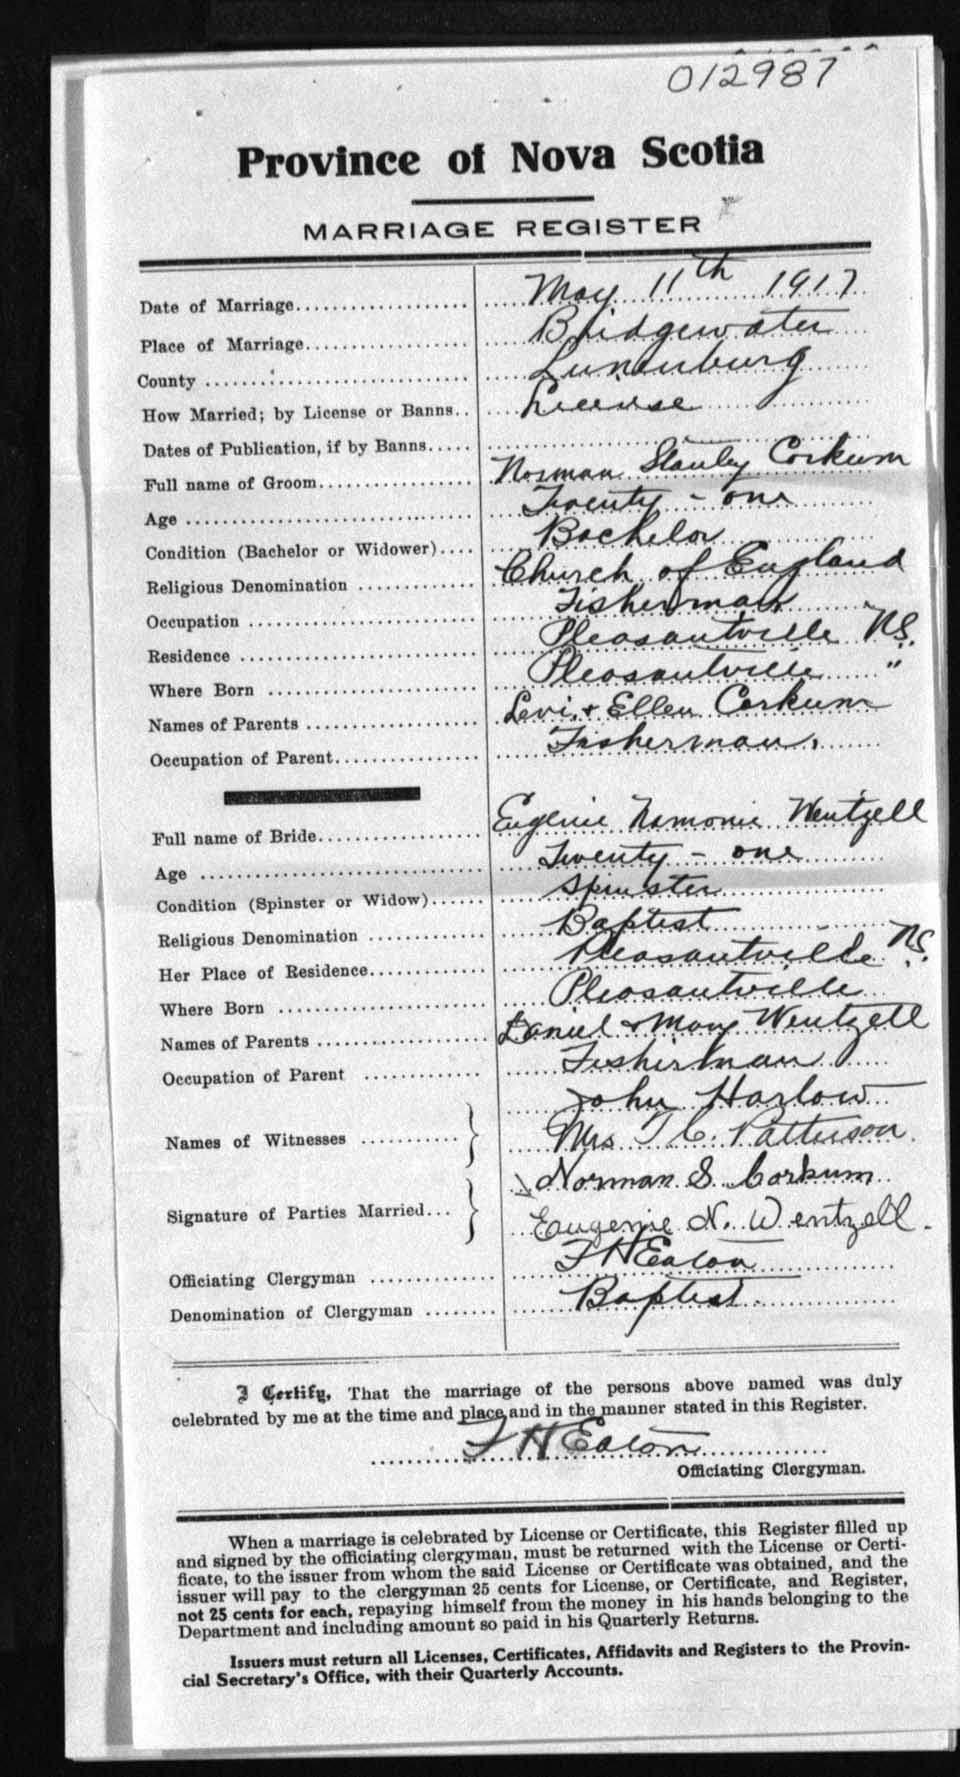 012987
Province of Nova Scotia
MARRIAGE REGISTER
Date of Marriage.................... May 11th 1917
Place of Marriage................... Bridgewater
County .............................. Lunenburg
How Married; by License or Banns.. License
Dates of Publication, if by Banns.....
Full name of Groom.................. Norman Stanley Corkum
Age ................................. Twenty-one
Condition (Bachelor or Widower).... Bachelor
Religious Denomination ............. Church of England
Occupation .......................... Fisherman
Residence ........................... Pleasantville NS.
Where Born .......................... Pleasantville "
Names of Parents .................... Levi & Ellen Corkum
Occupation of Parent................. Fisherman.
Full name of Bride................... Eugenie Namonie Wentzell
Age ................................. Twenty-one
Condition (Spinster or Widow)...... Spinster
Religious Denomination ............. Baptist
Her Place of Residence.............. Pleasantville NS.
Where Born .......................... Pleasantville
Names of Parents .................... Daniel & Mary Wentzell
Occupation of Parent ............... Fisherman
Names of Witnesses ........... } John Harlow
Mrs T C. Patterson
Signature of Parties Married... } Norman S. Corkum
Eugenie N. Wentzell.
Officiating Clergyman .............. F H Eaton
Denomination of Clergyman ........ Baptist.
I Certify, That the marriage of the persons above named was duly
celebrated by me at the time and place and in the manner stated in this Register.
F H Eaton
Officiating Clergyman.
When a marriage is celebrated by License or Certificate, this Register filled up
and signed by the officiating clergyman, must be returned with the License or Certi-
ficate, to the issuer from whom the said License or Certificate was obtained, and the
issuer will pay to the clergyman 25 cents for License, or Certificate, and Register,
not 25 cents for each, repaying himself from the money in his hands belonging to the
Department and including amount so paid in his Quarterly Returns.
Issuers must return all Licenses, Certificates, Affidavits and Registers to the Provin-
cial Secretary's Office, with their Quarterly Accounts.